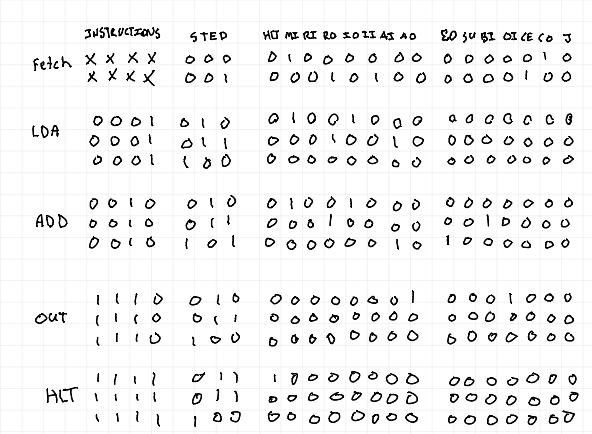 INSTRUCTIONS STED HLT MI RI RO IO II AI AO EO SU BI OI CE CO J
Fetch X X X X 0 0 0 0 1 0 0 0 0 0 0 0 0 0 0 0 1 0
X X X X 0 0 1 0 0 0 1 0 1 0 0 0 0 0 0 1 0 0
0 0 0 1 0 1 0 0 1 0 0 1 0 0 0 0 0 0 0 0 0 0
LDA 0 0 0 1 0 1 1 0 0 0 1 0 0 1 0 0 0 0 0 0 0 0
0 0 0 1 1 0 0 0 0 0 0 0 0 0 0 0 0 0 0 0 0 0
0 0 1 0 0 1 0 0 1 0 0 1 0 0 0 0 0 0 0 0 0 0
ADD 0 0 1 0 0 1 1 0 0 0 1 0 0 0 0 0 0 1 0 0 0 0
0 0 1 0 1 0 1 0 0 0 0 0 0 1 0 1 0 0 0 0 0 0
1 1 1 0 0 1 0 0 0 0 0 0 0 0 1 0 0 0 1 0 0 0
OUT 1 1 1 0 0 1 1 0 0 0 0 0 0 0 0 0 0 0 0 0 0 0
1 1 1 0 1 0 0 0 0 0 0 0 0 0 0 0 0 0 0 0 0 0
1 1 1 1 0 1 1 1 0 0 0 0 0 0 0 0 0 0 0 0 0 0
HLT 1 1 1 1 0 1 1 0 0 0 0 0 0 0 0 0 0 0 0 0 0 0
1 1 1 1 1 0 0 0 0 0 0 0 0 0 0 0 0 0 0 0 0 0